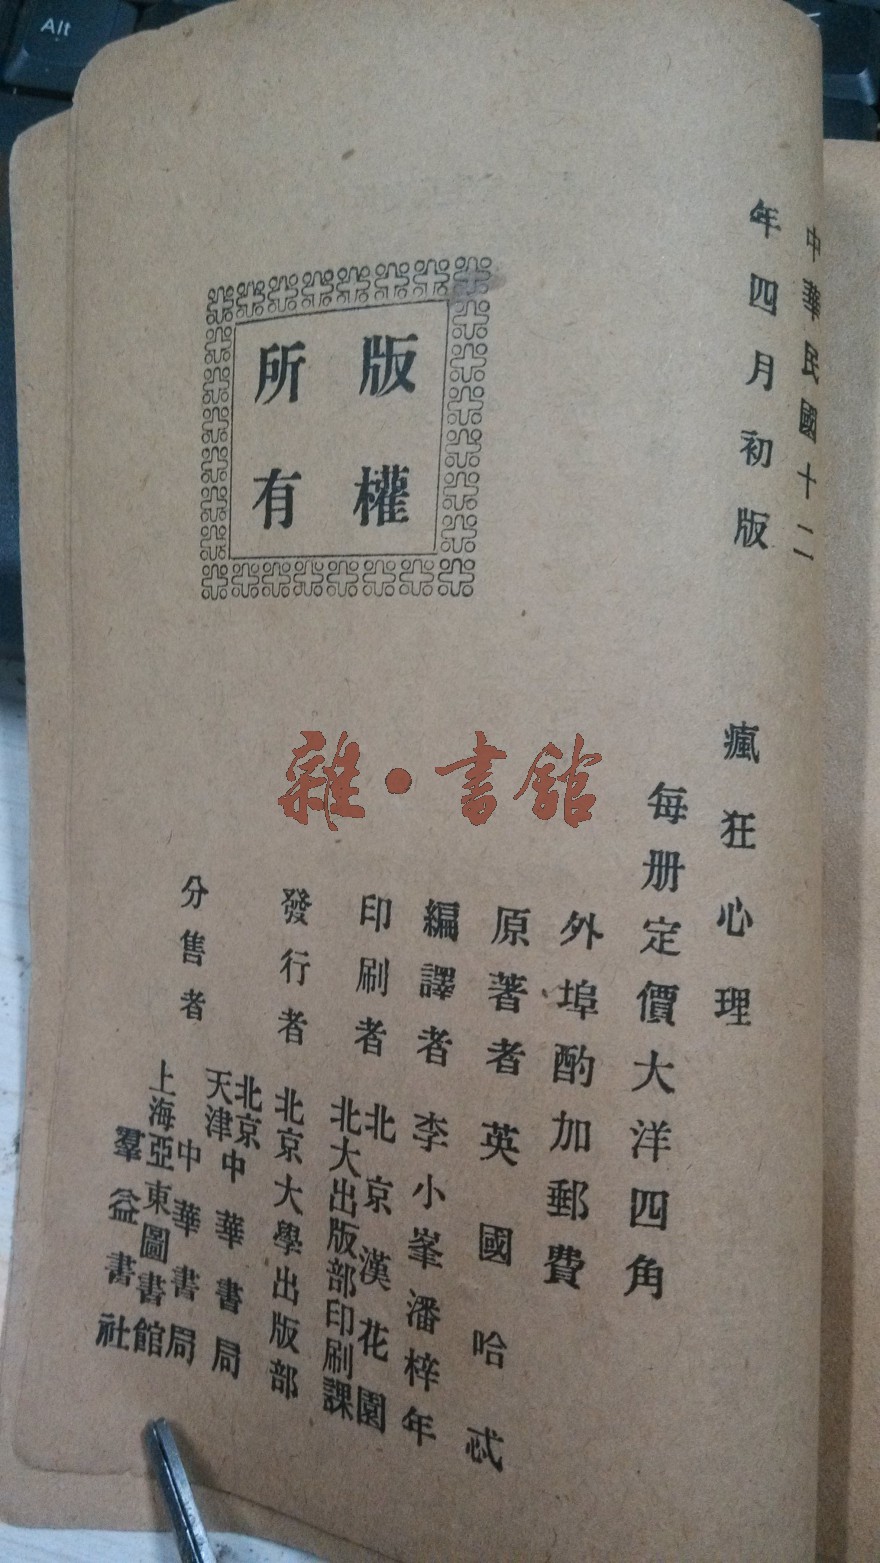 中華民國十二
年四月初版
瘋狂心理
每册定價大洋四角
外埠酌加郵費
原著者 英國哈忒
編譯者 李小峯潘梓年
印刷者 北京漢花園
北大出版部印刷課
發行者 北京大學出版部
分售者 北京中華書局
天津中華書局
上海亞東圖書館
羣益書社
版權
所有
雜·書館
Alt